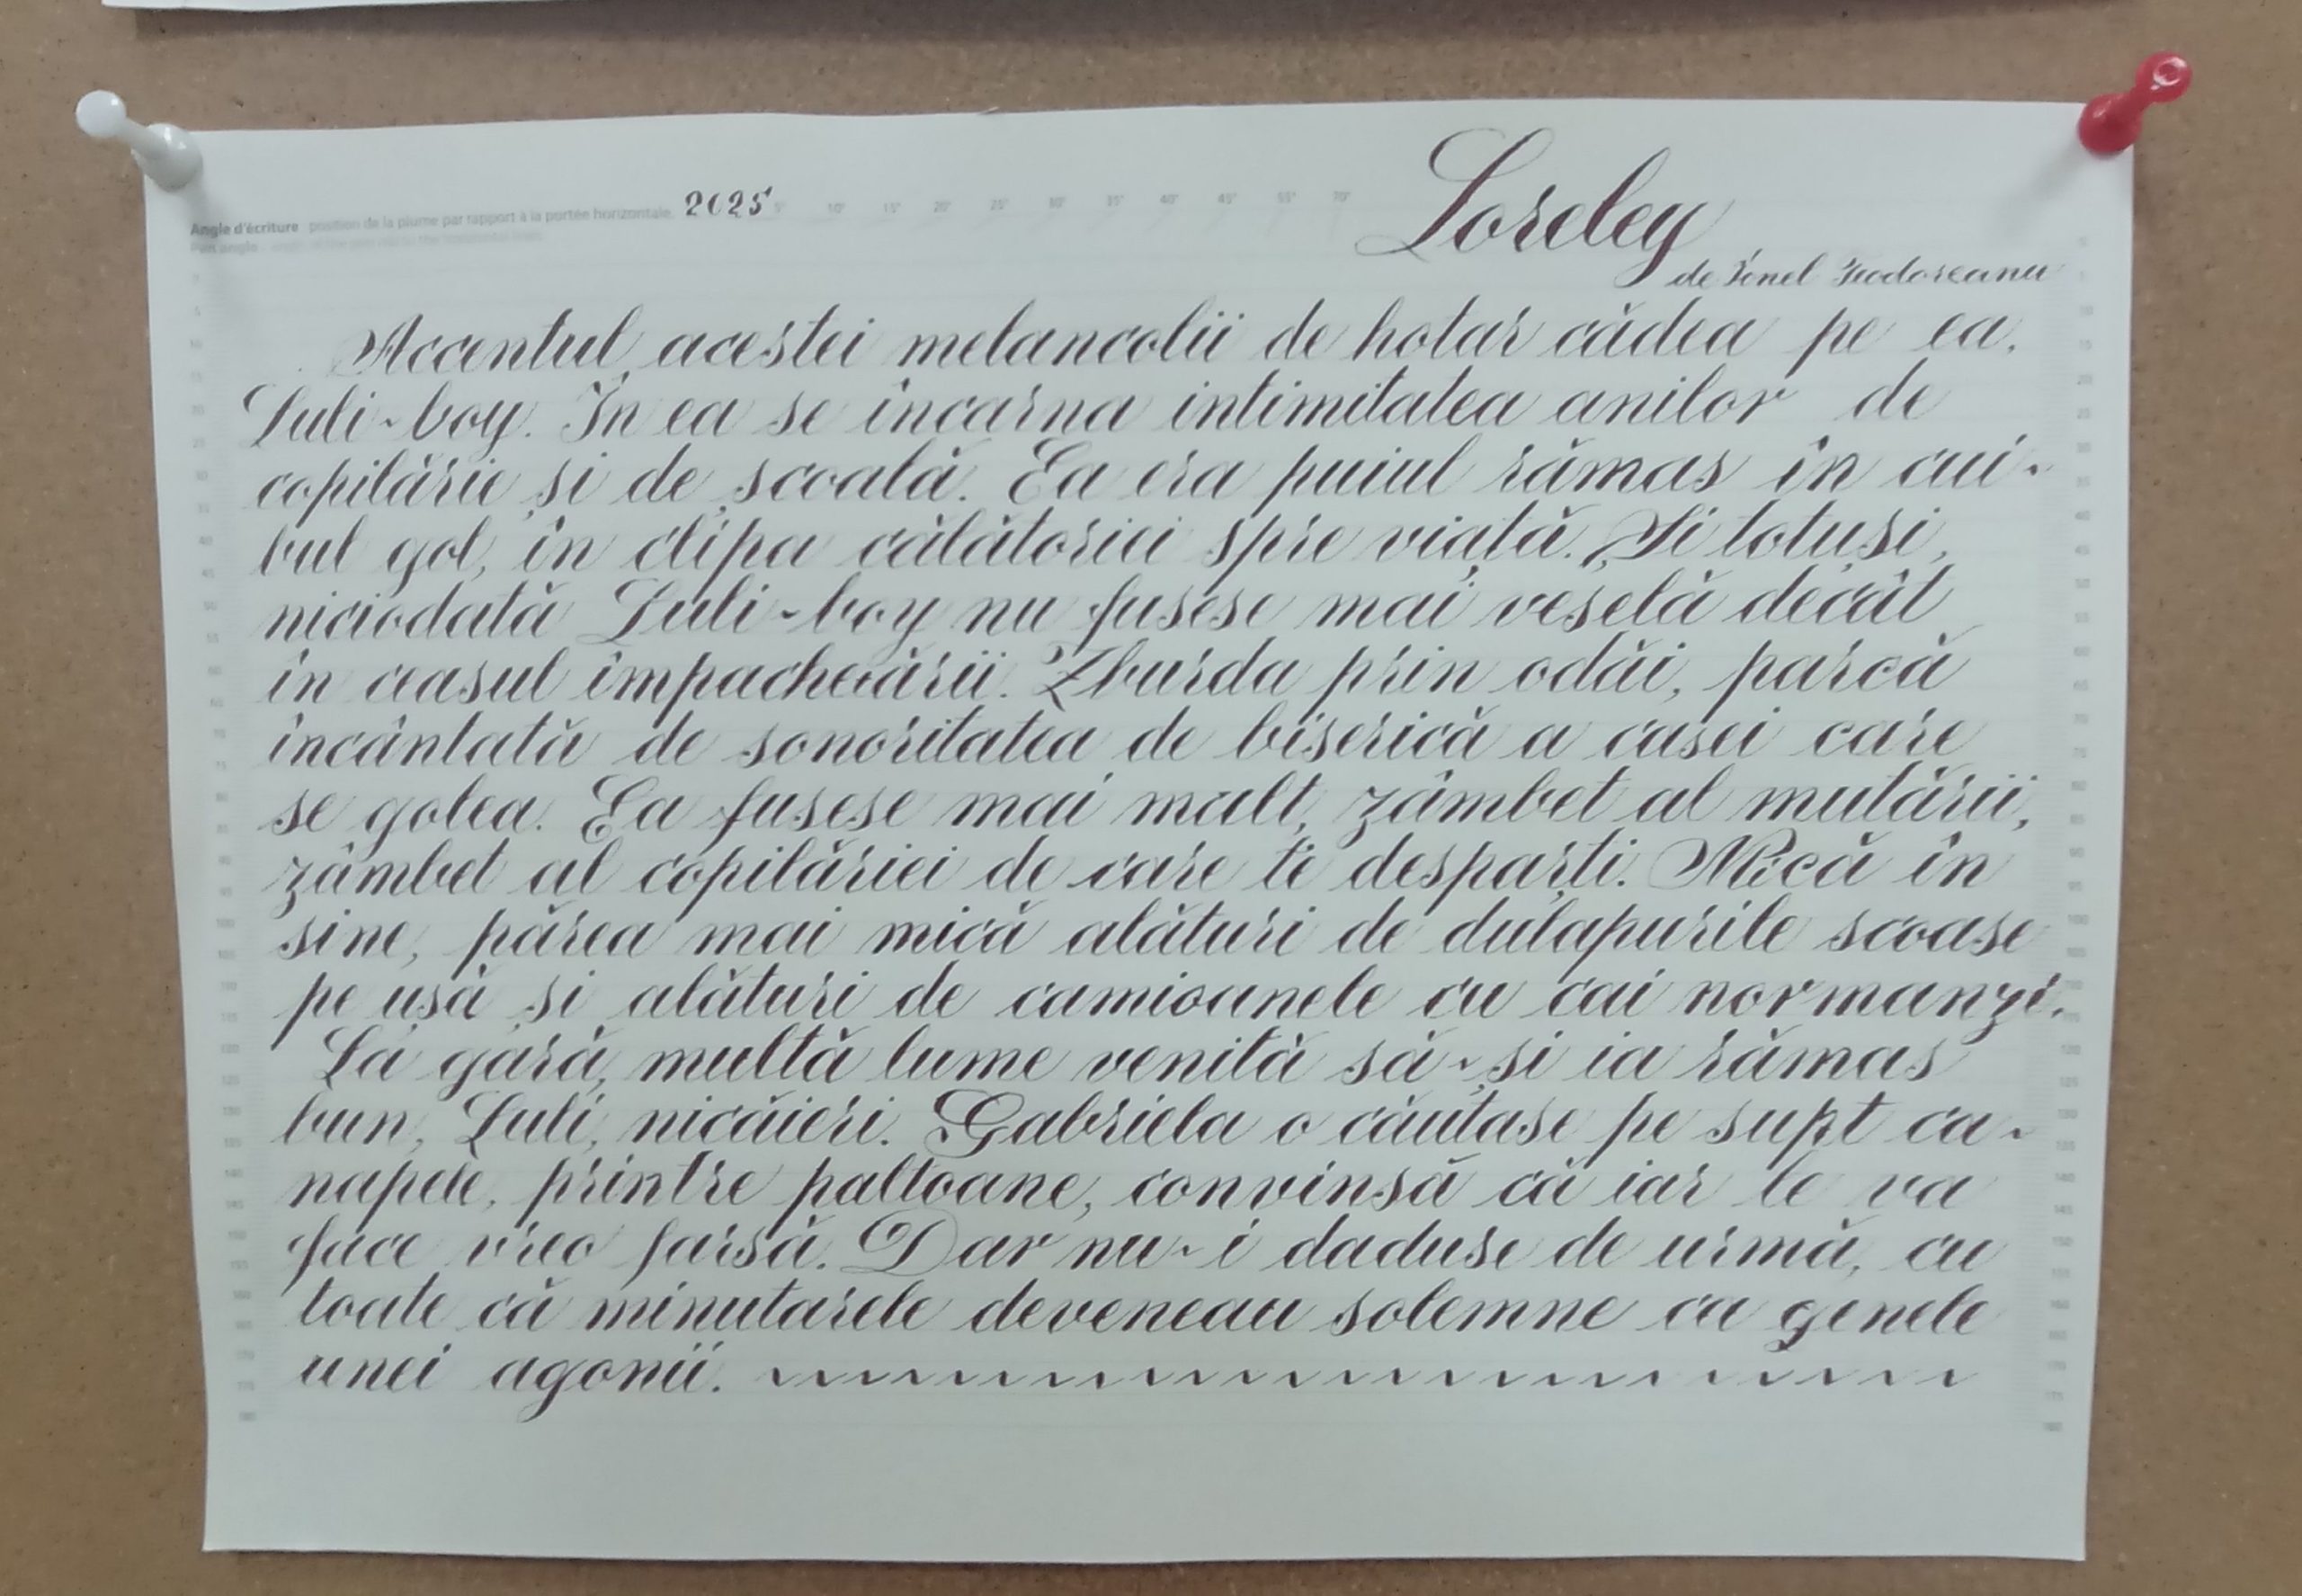 2025
Angle d'écriture position de la plume par rapport à la portée horizontale.
Pen angle
Loreley
de Ionel Teodoreanu
Accentul acestei melancolii de hotar cădea pe ea,
Luli-boy. În ea se încarna intimitatea anilor de
copilărie și de școală. Ea era puiul rămas în cui-
bul gol, în clipa călătoriei spre viață. Și totuși,
niciodată Luli-boy nu fusese mai veselă decât
în ceasul împachetării. Zburda prin odăi, parcă
încântată de sonoritatea de biserică a casei care
se golea. Ea fusese mai mult, zâmbet al mutării,
zâmbet al copilăriei de care te desparți. Mică în
sine, părea mai mică alături de dulapurile scoase
pe ușă și alături de camioanele cu cai normanzi.
La gară, multă lume venită să-și ia rămas
bun, Luli, nicăieri. Gabriela o căutase pe supt ca-
napele, printre paltoane, convinsă că iar le va
face vreo farsă. Dar nu-i daduse de urmă, cu
toate că minutarele deveneau solemne ca genele
unei agonii.